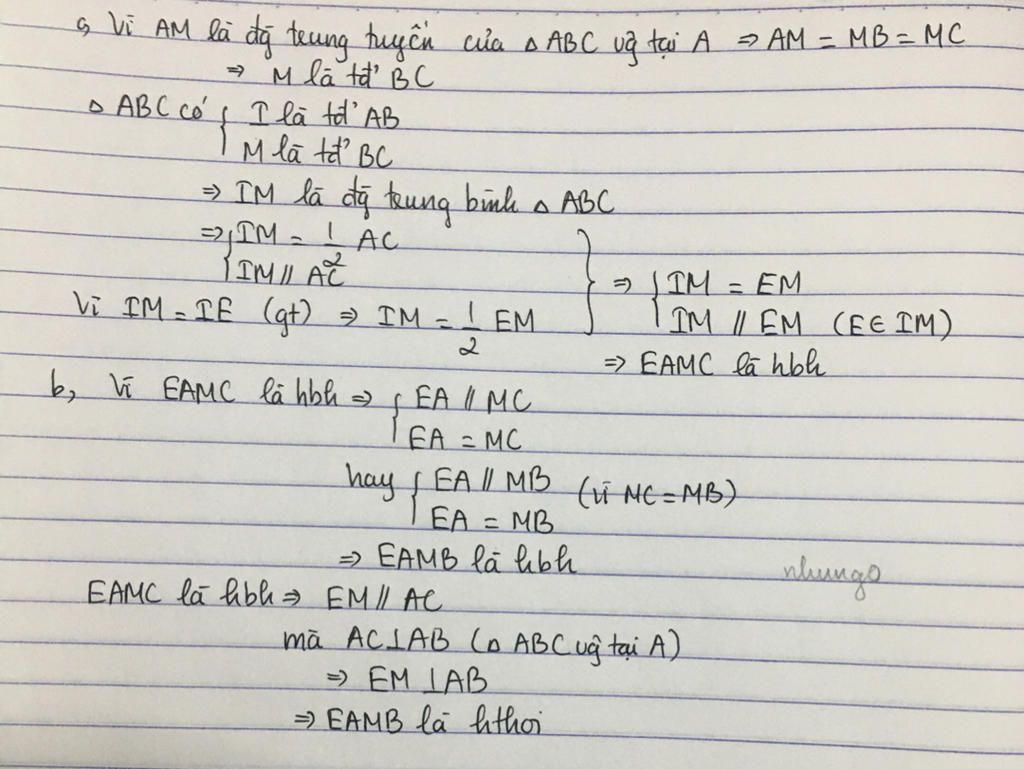 a, Vì AM là đg trung tuyến của △ ABC vg tại A ⇒ AM = MB = MC
⇒ M là tđ' BC
△ ABC có { I là tđ' AB
M là tđ' BC
⇒ IM là đg trung bình △ ABC
⇒ { IM = 1/2 AC
IM // AC
Vì IM = IE (gt) ⇒ IM = 1/2 EM
} ⇒ { IM = EM
IM // EM (E∈ IM)
⇒ EAMC là hbh
b, Vì EAMC là hbh ⇒ { EA // MC
EA = MC
hay { EA // MB (vì MC = MB)
EA = MB
⇒ EAMB là hbh
nhungo
EAMC là hbh ⇒ EM // AC
mà AC⊥AB (△ ABC vg tại A)
⇒ EM ⊥AB
⇒ EAMB là hthoi